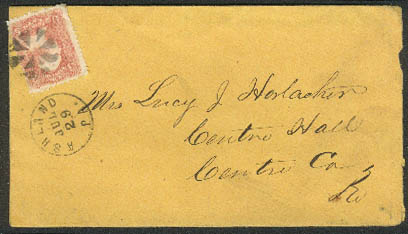 ASHLAND PA.
JUL
29
Mrs Lucy J. Horlacher
Centre Hall
Centre Co
Pa